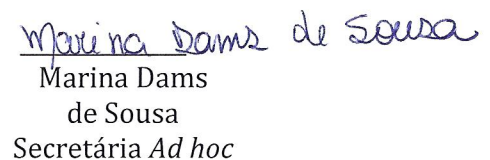 Marina Dams de Sousa
Marina Dams
de Sousa
Secretária Ad hoc